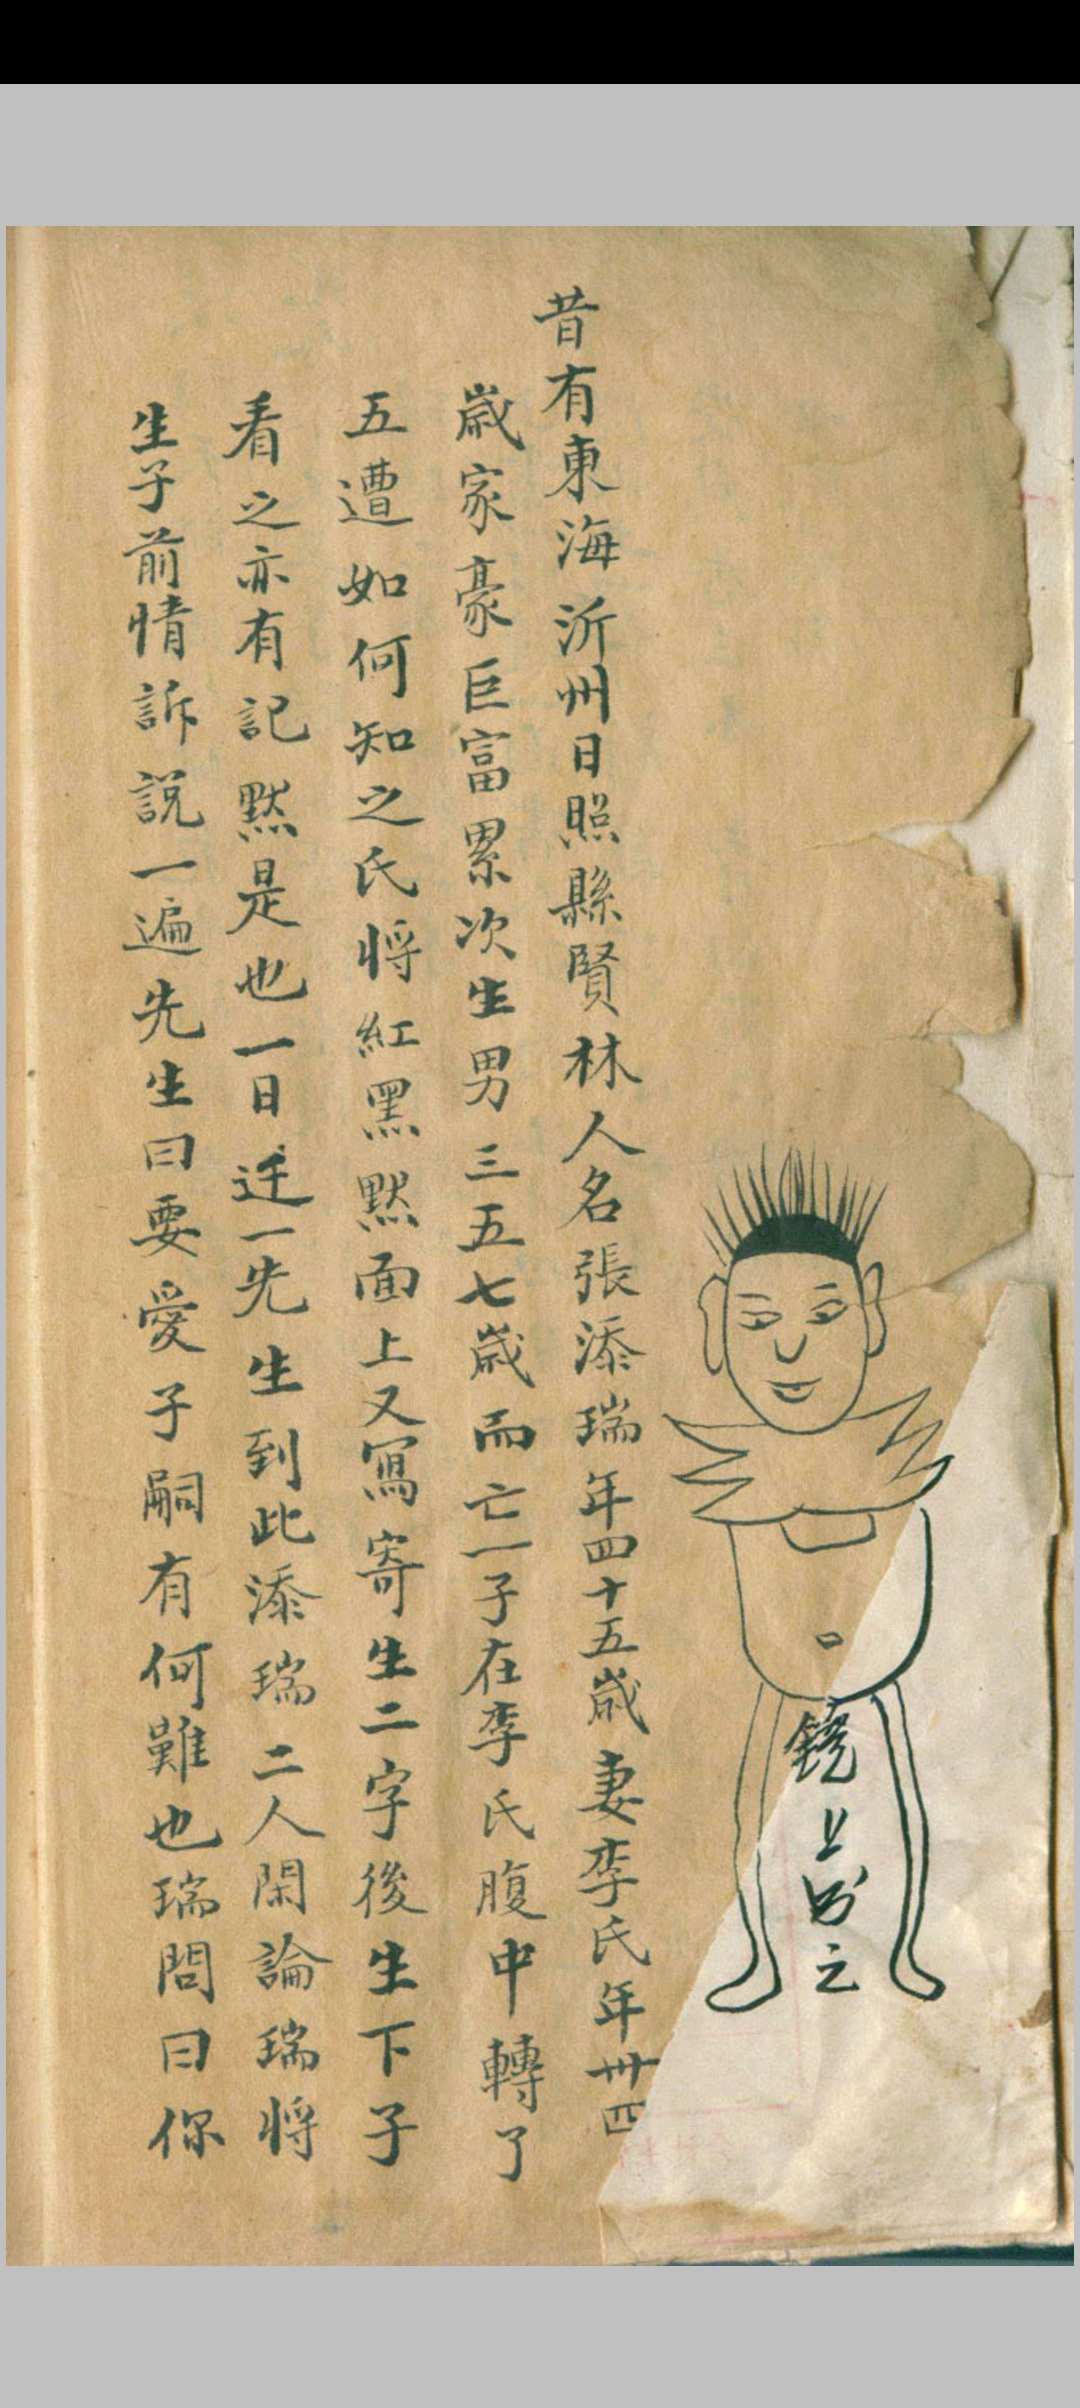 昔有東海沂州日照縣賢林人名張添瑞年四十五歲妻李氏年卅四
歲家豪巨富累次生男三五七歲而亡一子在李氏腹中轉了
五遭如何知之氏將紅黑黙面上又寫寄生二字後生下子
看之亦有記黙是也一日迋一先生到此添瑞二人閑論瑞將
生子前情訴說一遍先生曰要愛子嗣有何難也瑞問曰你